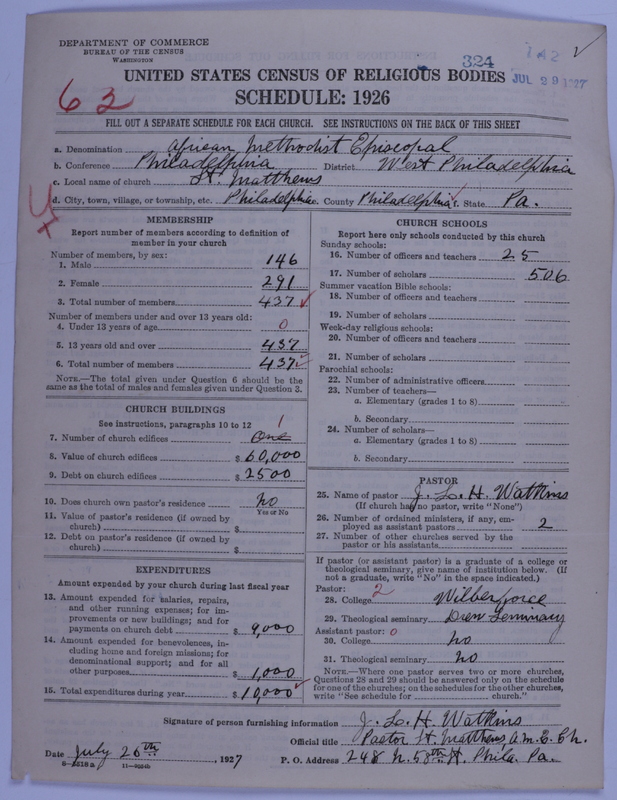 DEPARTMENT OF COMMERCE
BUREAU OF THE CENSUS
WASHINGTON
324
142
JUL 29 1927
UNITED STATES CENSUS OF RELIGIOUS BODIES
63
SCHEDULE: 1926
FILL OUT A SEPARATE SCHEDULE FOR EACH CHURCH. SEE INSTRUCTIONS ON THE BACK OF THIS SHEET
a. Denomination African Methodist Episcopal
b. Conference Philadelphia District West Philadelphia
c. Local name of church St. Matthews
d. City, town, village, or township, etc. Philadelphia e. County Philadelphia f. State Pa.
MEMBERSHIP
Report number of members according to definition of
member in your church
Number of members, by sex:
1. Male 146
2. Female 291
3. Total number of members 437
Number of members under and over 13 years old:
4. Under 13 years of age 0
5. 13 years old and over 437
6. Total number of members 437
NOTE.—The total given under Question 6 should be the
same as the total of males and females given under Question 3.
CHURCH BUILDINGS
See instructions, paragraphs 10 to 12 1
7. Number of church edifices One
8. Value of church edifices $ 60,000
9. Debt on church edifices $ 2500
10. Does church own pastor's residence No
Yes or No
11. Value of pastor's residence (if owned by
church) $
12. Debt on pastor's residence (if owned by
church) $
EXPENDITURES
Amount expended by your church during last fiscal year
13. Amount expended for salaries, repairs,
and other running expenses; for im-
provements or new buildings; and for
payments on church debt $ 9,000
14. Amount expended for benevolences, in-
cluding home and foreign missions; for
denominational support; and for all
other purposes $ 1,000
15. Total expenditures during year $ 10,000
CHURCH SCHOOLS
Report here only schools conducted by this church
Sunday schools:
16. Number of officers and teachers 25
17. Number of scholars 506
Summer vacation Bible schools:
18. Number of officers and teachers
19. Number of scholars
Week-day religious schools:
20. Number of officers and teachers
21. Number of scholars
Parochial schools:
22. Number of administrative officers
23. Number of teachers—
a. Elementary (grades 1 to 8)
b. Secondary
24. Number of scholars—
a. Elementary (grades 1 to 8)
b. Secondary
PASTOR
25. Name of pastor J. L. H. Watkins
(If church has no pastor, write "None")
26. Number of ordained ministers, if any, em-
ployed as assistant pastors 2
27. Number of other churches served by the
pastor or his assistants
If pastor (or assistant pastor) is a graduate of a college or
theological seminary, give name of institution below. (If
not a graduate, write "No" in the space indicated.)
Pastor: 2
28. College Wilberforce
29. Theological seminary Drew Seminary
Assistant pastor: 0
30. College No
31. Theological seminary No
NOTE.—Where one pastor serves two or more churches,
Questions 28 and 29 should be answered only on the schedule
for one of the churches; on the schedules for the other churches,
write "See schedule for church."
Signature of person furnishing information J. L. H. Watkins
Official title Pastor St. Matthews A.M.E. Ch.
Date July 26th, 1927 P. O. Address 248 N. 58th St. Phila. Pa.
8—2518 a